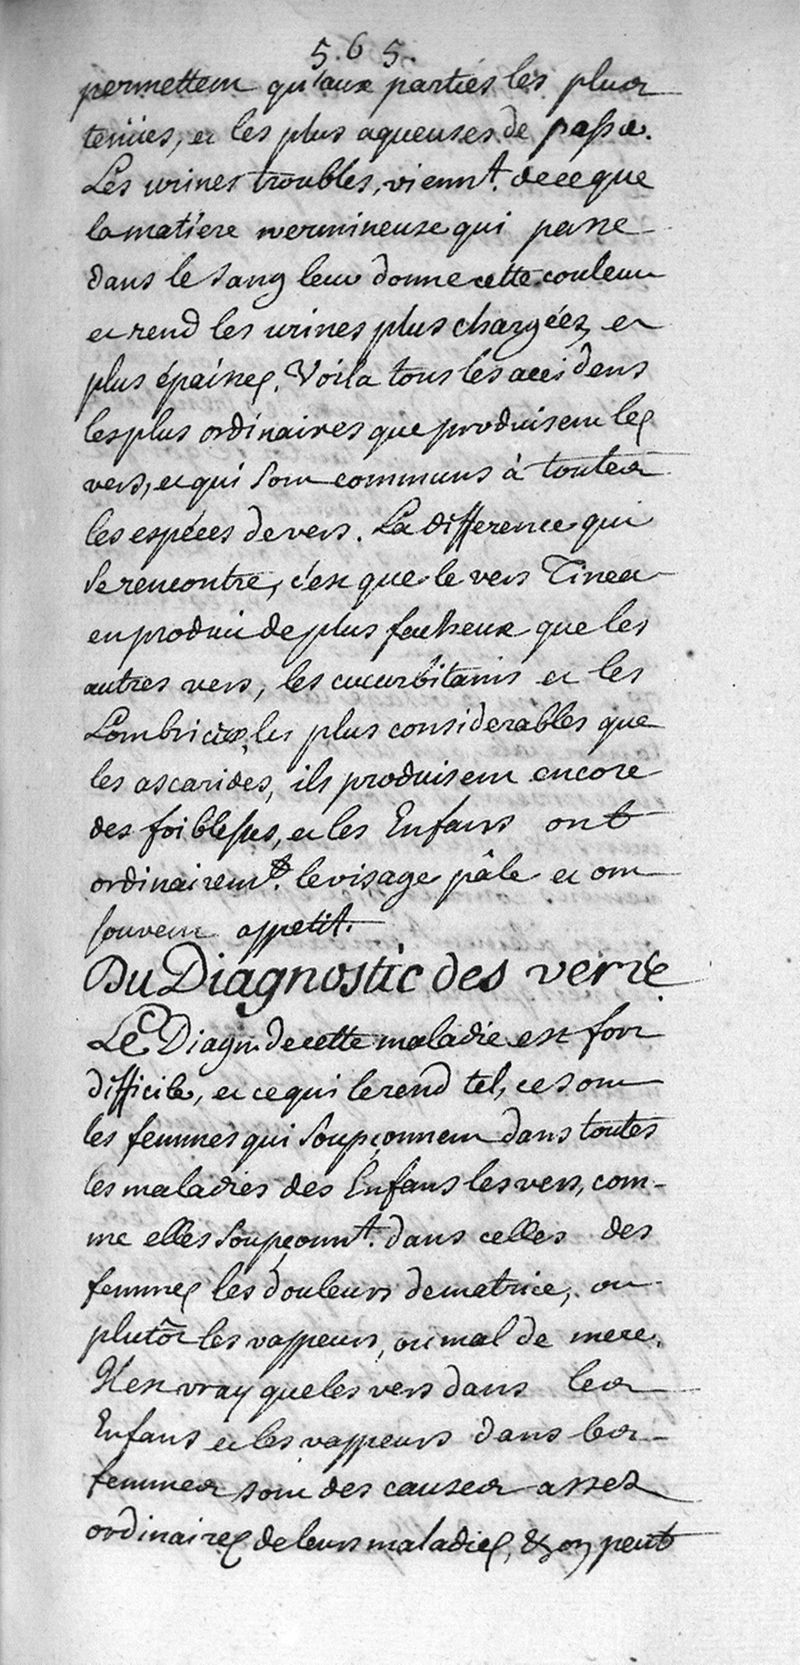 565.
permettent qu'aux parties les plus
tenües, et les plus aqueuses de passer.
Les urines troubles, viennt. de ce que
la matiere vermineuse qui passe
dans le sang leur donne cette couleur
et rend les urines plus chargées, et
plus épaisses. Voila tous les accidens
les plus ordinaires que produisent les
vers, et qui sont communs à toutes
les espéces de vers. La difference qui
se rencontre, c'est que le vers Tinea
en produit de plus facheux que les
autres vers, les cucurbitains et les
Lombricaux, les plus considerables que
les ascarides, ils produisent encore
des foiblesses, et les Enfans ont
ordinairemt. le visage pâle et ont
souvent appetit.
Du Diagnostic des vers
Le Diagn. de cette maladie est fort
difficile, et ce qui le rend tel, ce sont
les femmes qui soupçonnent dans toutes
les maladies des Enfans les vers, com-
me elles soupçonnt. dans celles des
femmes les douleurs de matrice, ou
plutôt les vappeurs, ou mal de mere.
Il est vray que les vers dans les
Enfans et les vappeurs dans les
femmes sont des causes assez
ordinaires de leurs maladies, & on peut